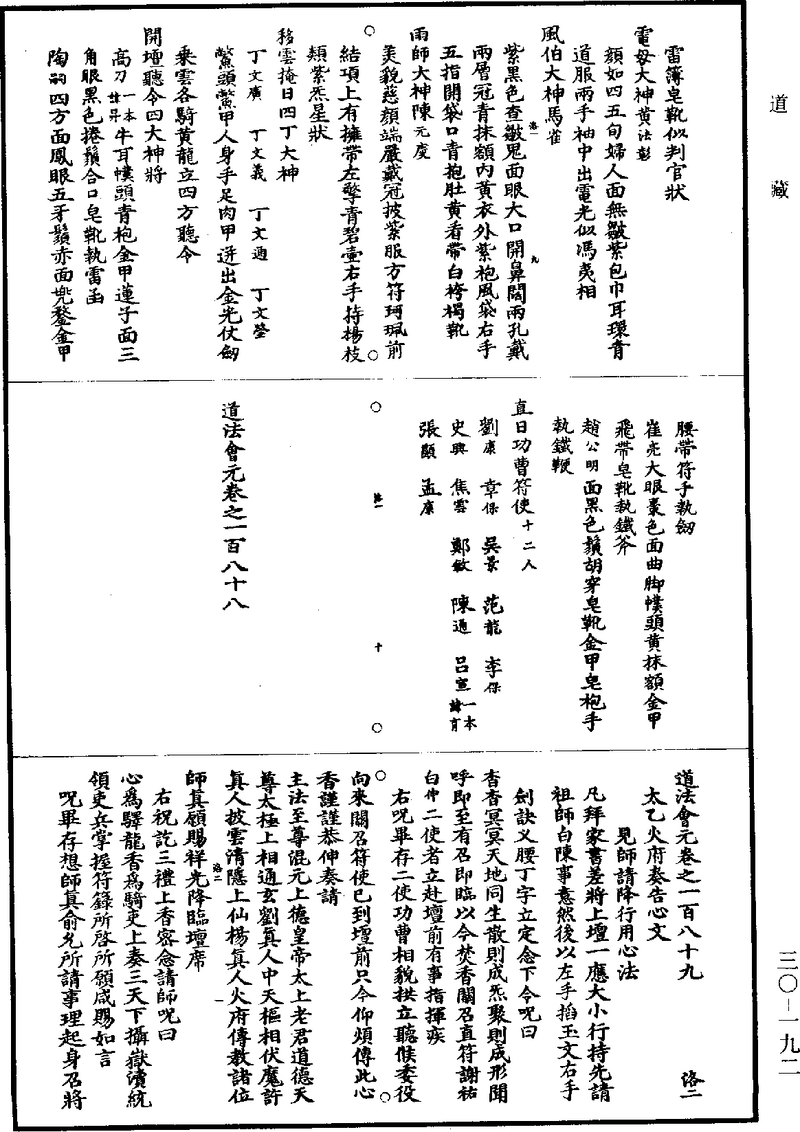 道藏
雷簿皂靴似判官狀
電母大神黃法彰
顏如四五旬婦人面無皺紫包巾耳環青
道服兩手袖中出電光似馮夷相
風伯大神馬雀
紫黑色查皺鬼面眼大口開鼻闊兩孔戴
兩層冠青抹額內黃衣外紫袍風袋右手
五指開袋口青抱肚黃看帶白袴褐靴
雨師大神陳元度
美貌慈顏端嚴戴冠披紫服方符珂珮前
結項上有擁帶左擎青碧壺右手持楊枝
類紫炁星狀
移雲掩日四丁大神
丁文廣 丁文義 丁文通 丁文瑩
鱉頭鱉甲人身手足肉甲迸出金光仗劒
乘雲各騎黃龍立四方聽令
開壇聽令四大神將
高刀一本牛耳幞頭青袍金甲蓮子面三
角眼黑色捲鬚合口皂靴執雷函
陶 四方面鳳眼五牙鬚赤面兜鍪金甲
腰帶符手執劒
崔亮大眼棗色面曲脚幞頭黃抹額金甲
飛帶皂靴執鐵斧
趙公明面黑色鬚胡穿皂靴金甲皂袍手
執鐵鞭
直日功曹符使十二人
劉康 章保 吳景 范龍 李保
史興 焦雲 鄭敏 陳通 呂宣一本
張願 孟康
道法會元卷之一百八十八
道法會元卷之一百八十九 洛二
太乙火府奏告心文
見師請降行用心法
凡拜家書差將上壇一應大小行持先請
祖師白陳事意然後以左手掐玉文右手
劒訣叉腰丁字立定念下令呪曰
杳杳冥冥天地同生散則成炁聚則成形聞
呼即至有召即臨以今焚香關召直符謝祐
白仲二使者立赴壇前有事指揮疾
右呪畢存二使功曹相貌拱立聽候委役
向來關召符使已到壇前只今仰煩傳此心
香謹謹恭伸奏請
主法至尊混元上德皇帝太上老君道德天
尊太極上相通玄劉真人中天樞相伏魔許
真人披雲清隱上仙楊真人火府傳教諸位
師真願賜祥光降臨壇席
右祝訖三禮上香密念請師呪曰
心爲驛龍香爲騎吏上奏三天下攝嶽瀆統
領吏兵掌握符籙所啓所願咸賜如言
呪畢存想師真俞允所請事理起身召將
三〇—一九二